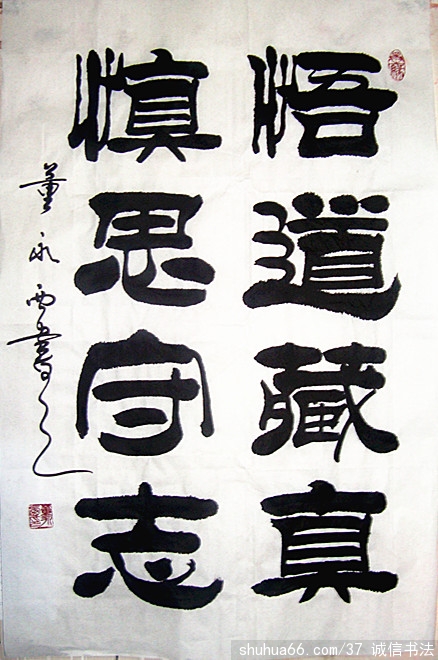 悟道藏真
慎思守志
董永西書之
shuhua66.com/37 诚信书法